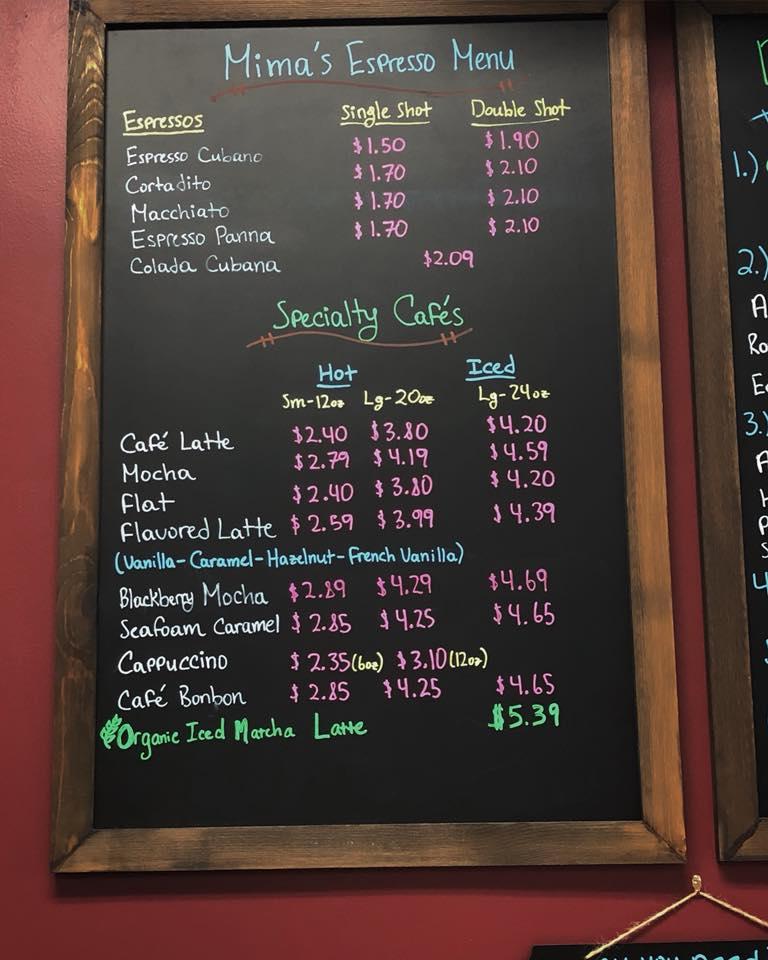 Mima's Espresso Menu
Espressos Single Shot Double Shot
Espresso Cubano $1.50 $1.90
Cortadito $1.70 $2.10
Macchiato $1.70 $2.10
Espresso Panna $1.70 $2.10
Colada Cubana $2.09
Specialty Cafés
Hot Iced
Sm-12oz Lg-20oz Lg-24oz
Café Latte $2.40 $3.80 $4.20
Mocha $2.79 $4.19 $4.59
Flat $2.40 $3.80 $4.20
Flavored Latte $2.59 $3.99 $4.39
(Vanilla-Caramel-Hazelnut-French Vanilla)
Blackberry Mocha $2.89 $4.29 $4.69
Seafoam Caramel $2.85 $4.25 $4.65
Cappuccino $2.35(6oz) $3.10(12oz)
Café Bonbon $2.85 $4.25 $4.65
Organic Iced Matcha Latte $5.39
1.)
2.)
3.)
you need